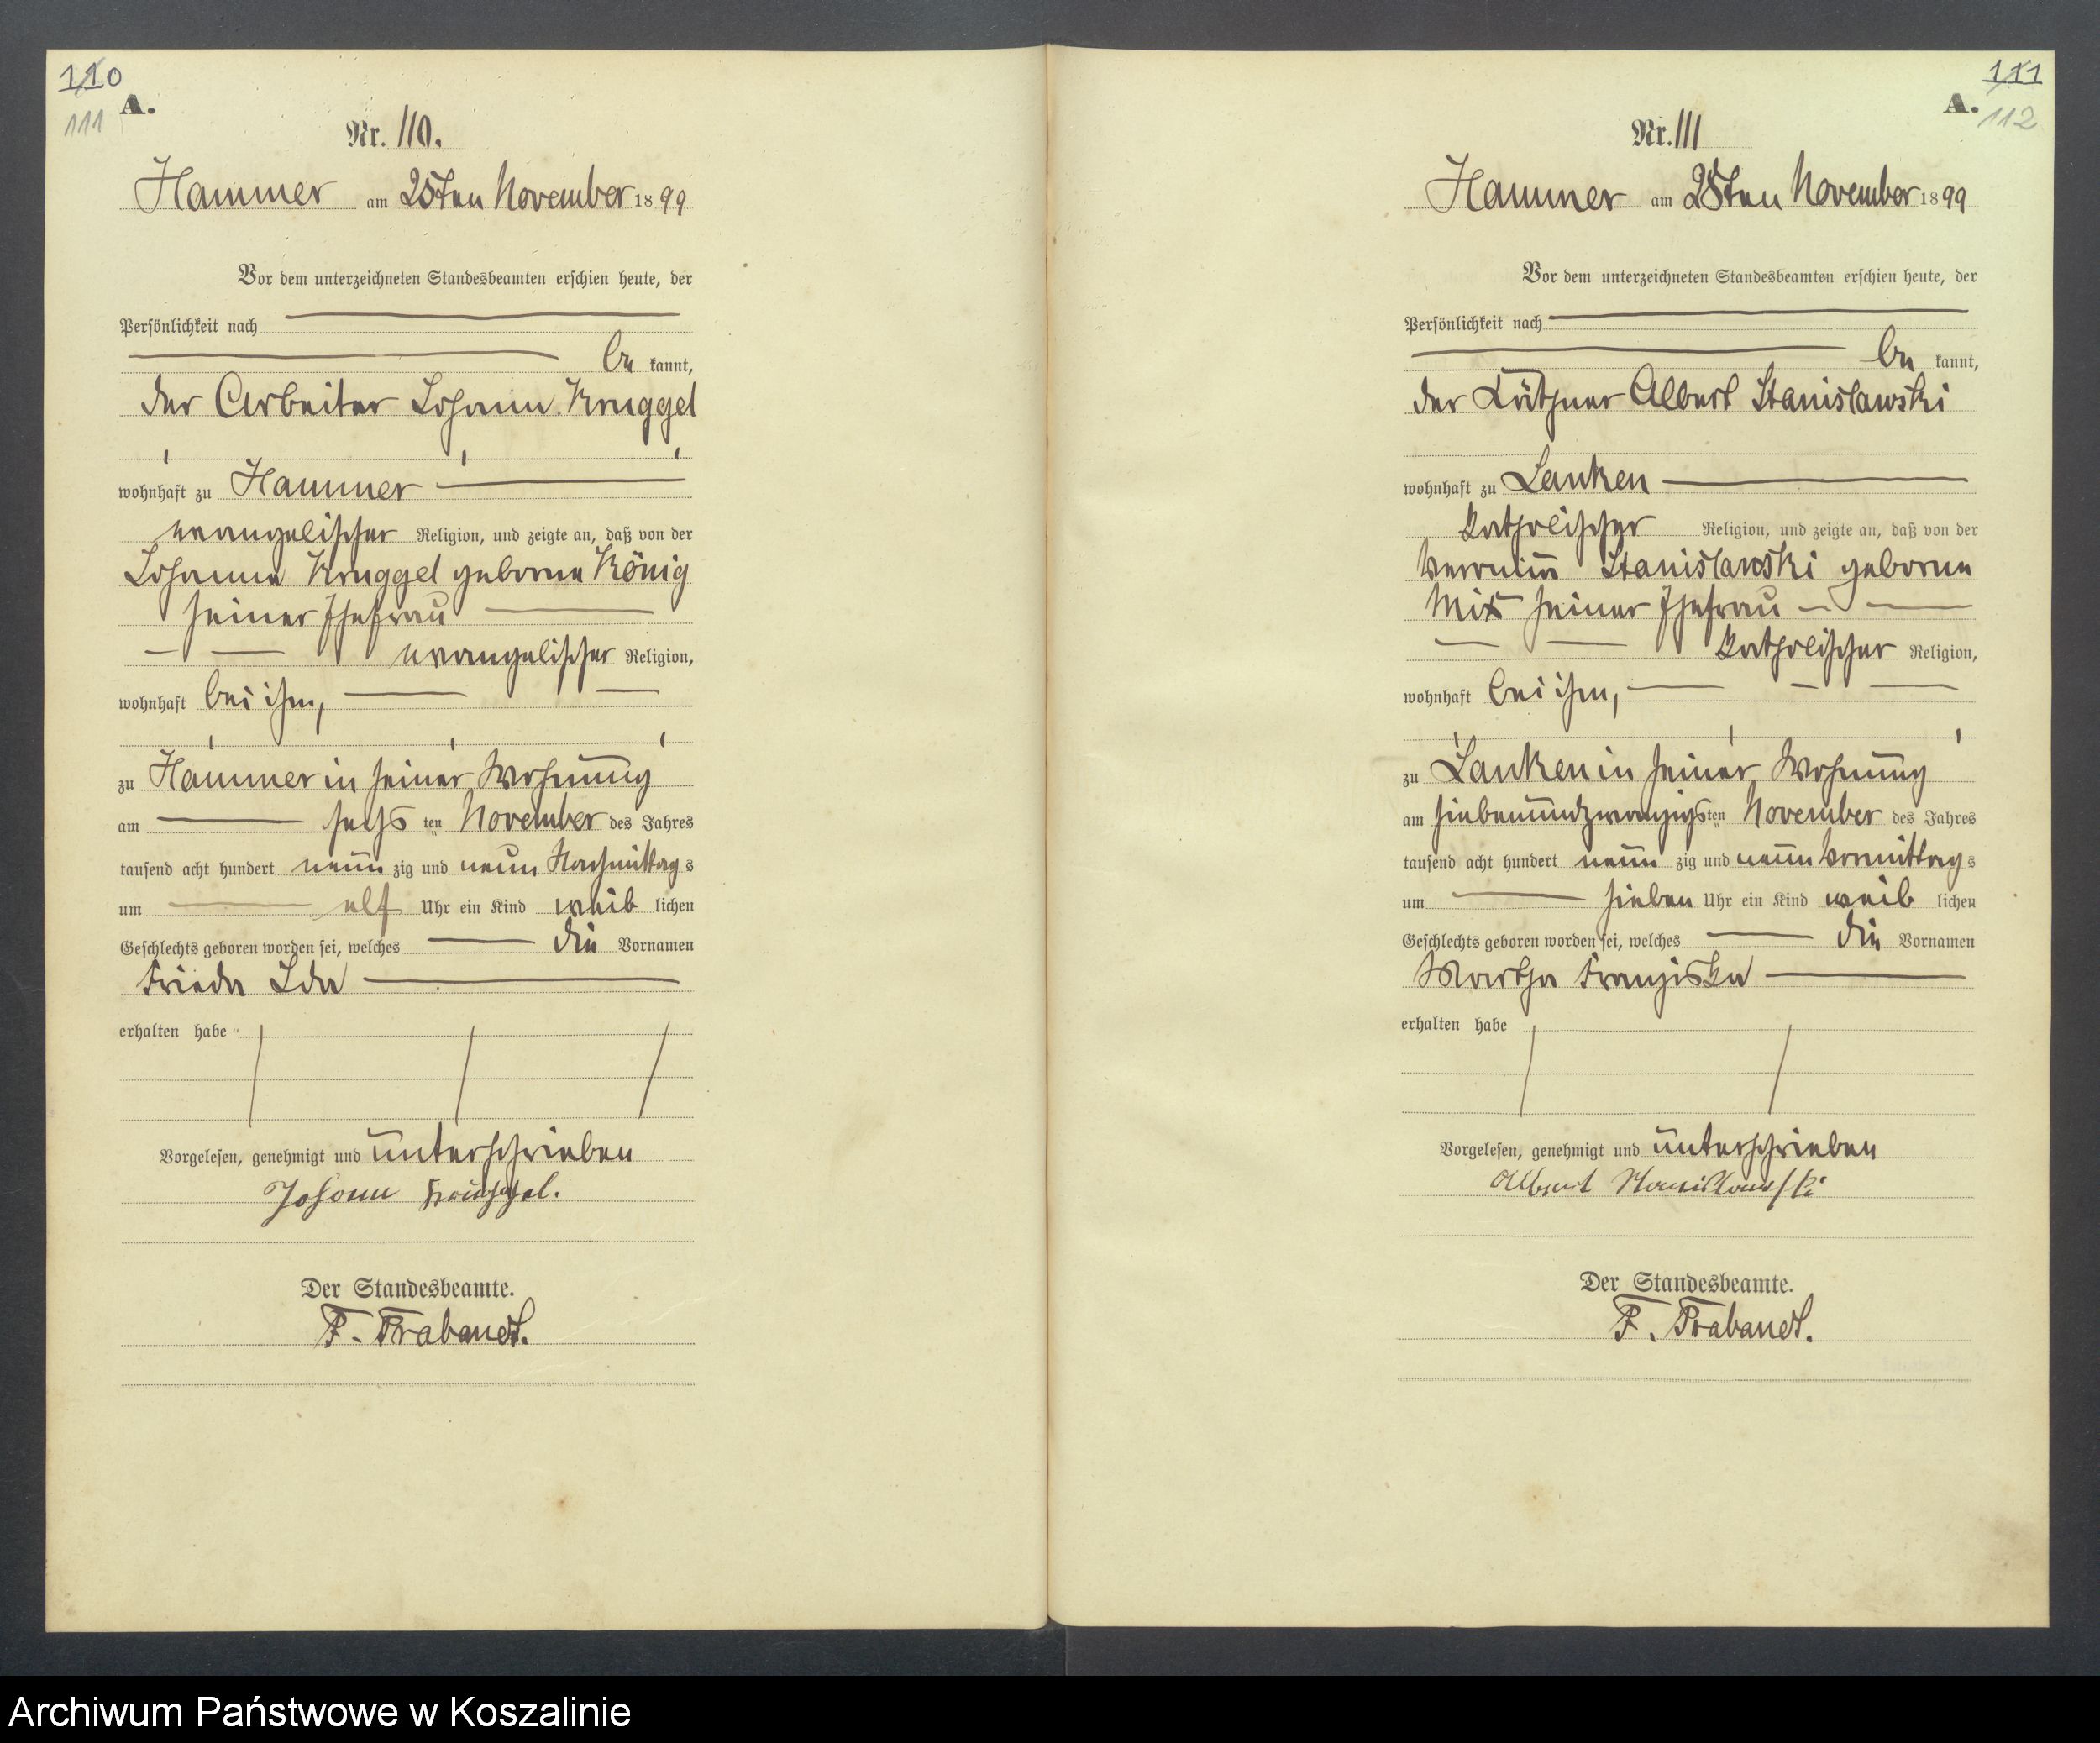 110
111
A.
Nr. 110.
Hammer am 25ten November 1899
Vor dem unterzeichneten Standesbeamten erschien heute, der
Persönlichkeit nach
be kannt,
der Arbeiter Johann Kruggel
wohnhaft zu Hammer
evangelischer Religion, und zeigte an, daß von der
Johanna Kruggel geborne König
seiner Ehefrau
evangelischer Religion,
wohnhaft bei ihm,
zu Hammer in seiner Wohnung
am sechs ten November des Jahres
tausend acht hundert neun zig und neun Nachmittag s
um elf Uhr ein Kind weib lichen
Geschlechts geboren worden sei, welches die Vornamen
Frieda Ida
erhalten habe
Vorgelesen, genehmigt und unterschrieben
Johann
Der Standesbeamte.
F. Trabandt.
111
A.
112
Nr. 111
Hammer am ten November 1899
Vor dem unterzeichneten Standesbeamten erschien heute, der
Persönlichkeit nach
be kannt,
der Käthner Albert Stanislawski
wohnhaft zu Lanken
katholischer Religion, und zeigte an, daß von der
Stanislawski geborne
Mix seiner Ehefrau
katholischer Religion,
wohnhaft bei ihm,
zu Lanken in seiner Wohnung
am siebenundzwanzigsten November des Jahres
tausend acht hundert neun zig und neun Vormittag s
um sieben Uhr ein Kind weib lichen
Geschlechts geboren worden sei, welches die Vornamen
Martha Franziska
erhalten habe
Vorgelesen, genehmigt und unterschrieben
Albert Stanislawski
Der Standesbeamte.
F. Trabandt.
Archiwum Państwowe w Koszalinie